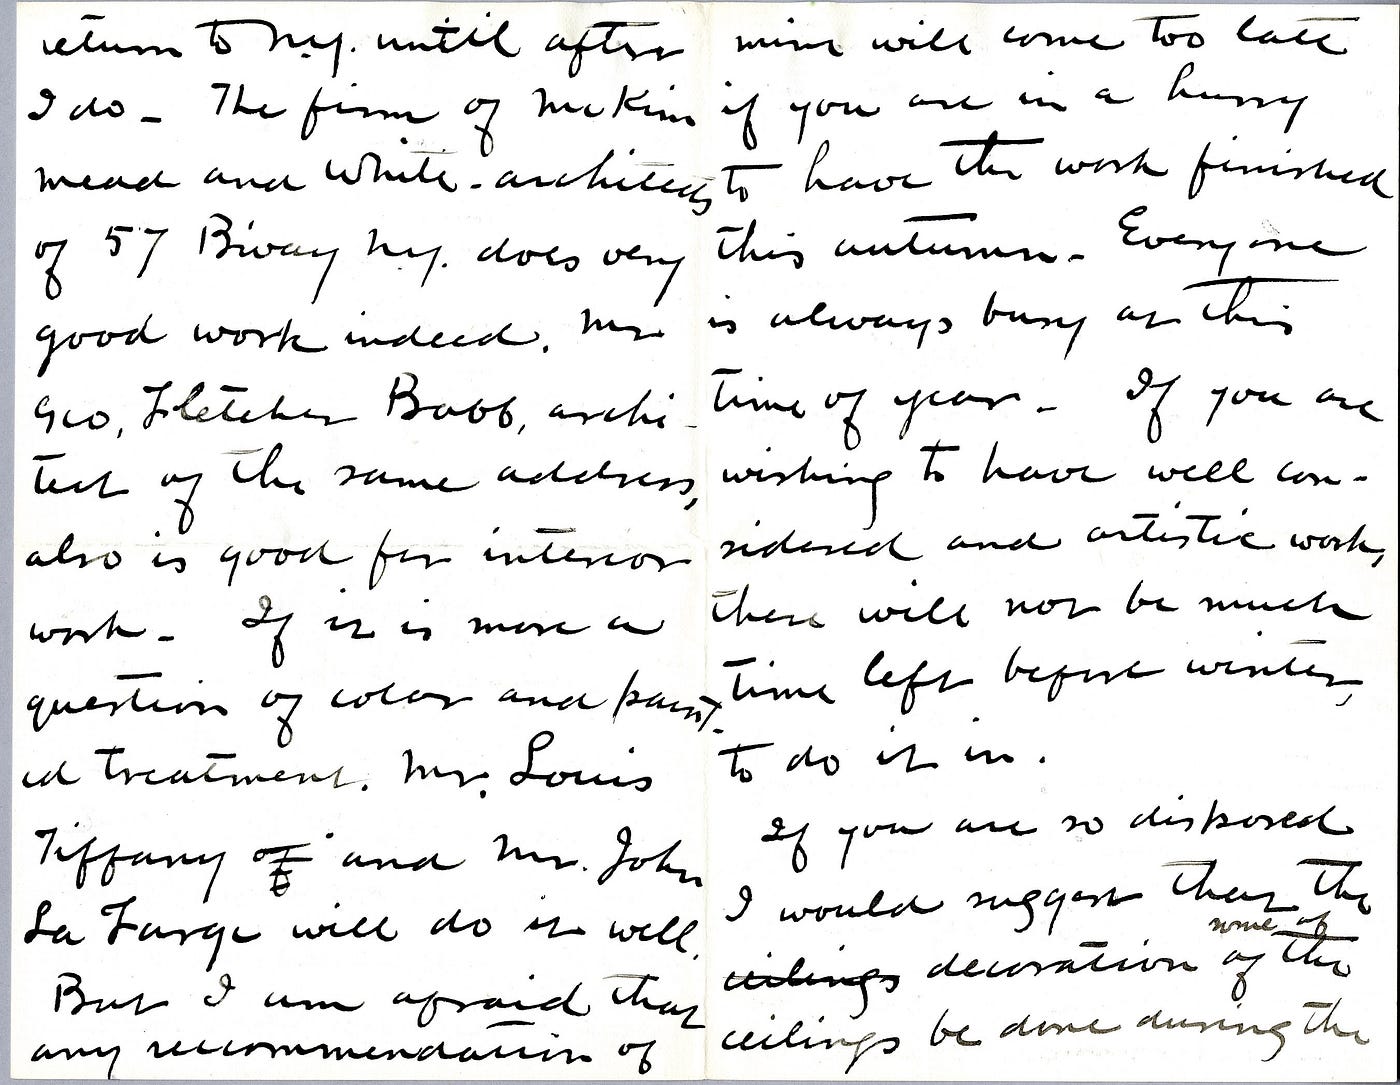 return to N.Y. until after
I do – The firm of McKim
Mead and White - architects
of 57 B'way N.Y. does very
good work indeed. Mr
Geo, Fletcher Babb, archi-
tect of the same address,
also is good for interior
work – If it is more a
question of color and paint-
ed treatment. Mr. Louis
Tiffany and Mr. John
La Farge will do it well.
But I am afraid that
any recommendation of
mine will come too late
if you are in a hurry
to have the work finished
this autumn – Everyone
is always busy at this
time of year – If you are
wishing to have well con-
sidered and artistic work,
there will not be much
time left before winter,
to do it in.
If you are so disposed
I would suggest that the
some of
ceilings decoration of the
ceilings be done during the